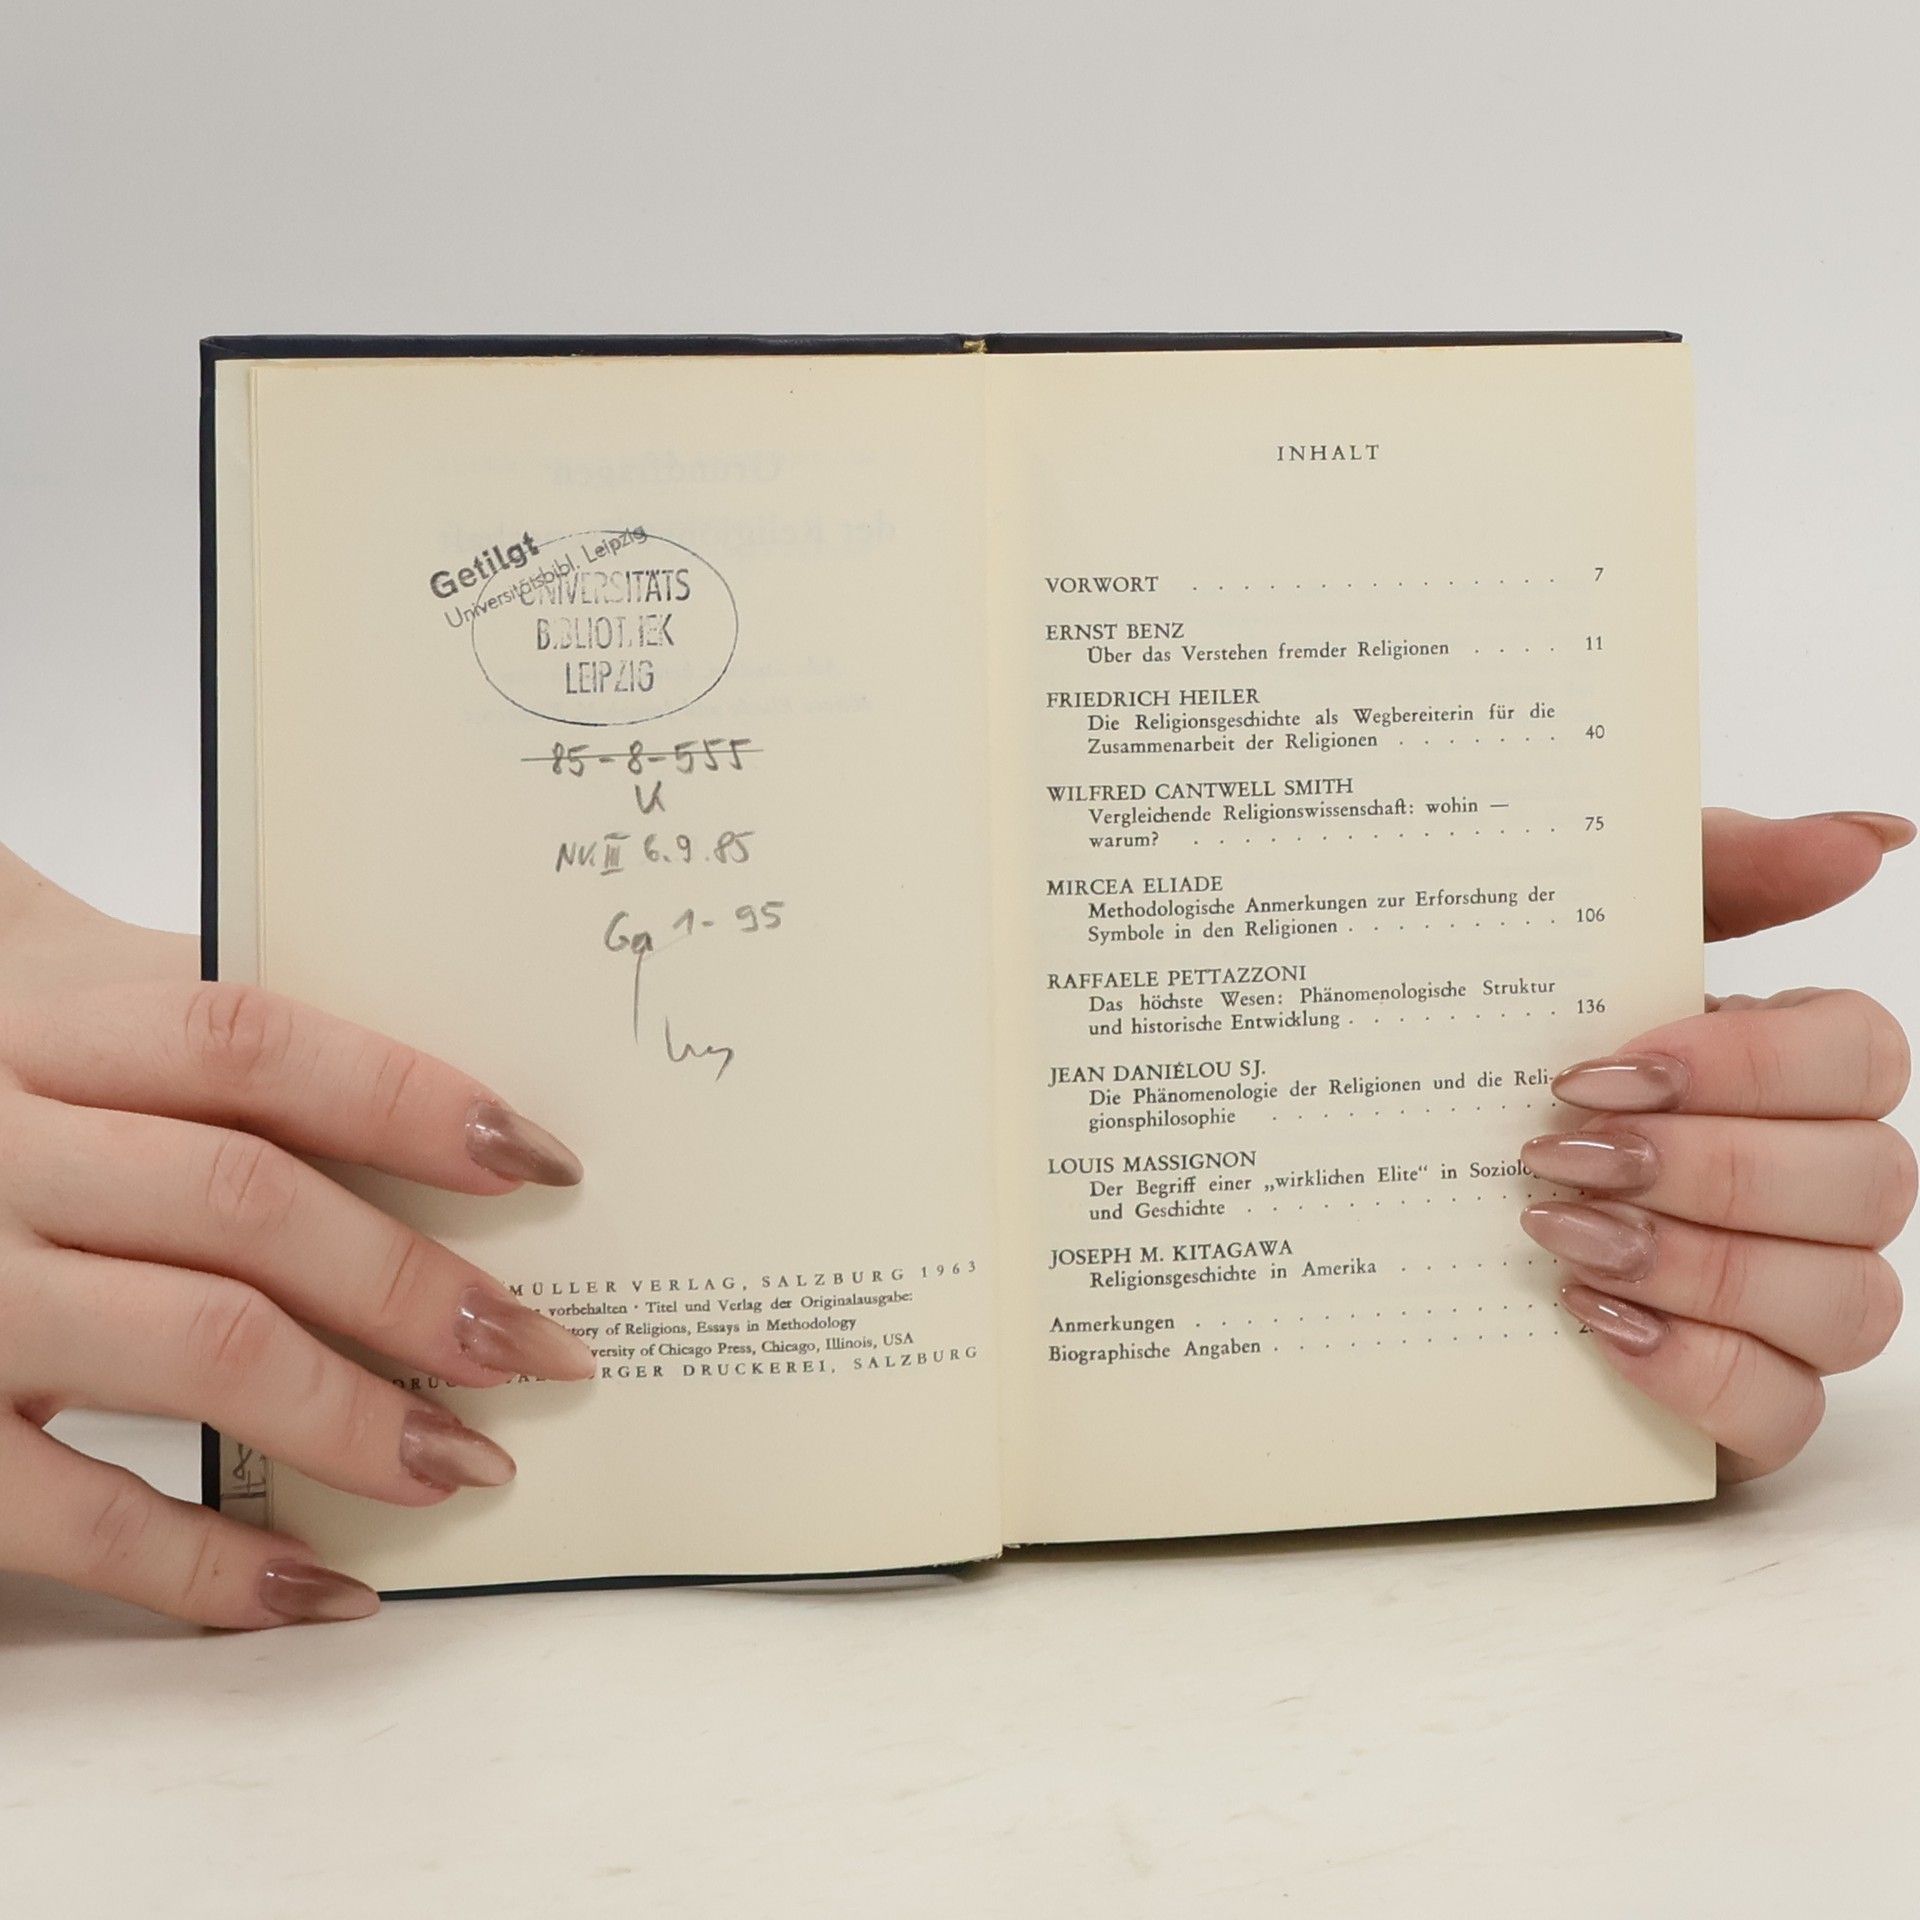 Getilgt
Universitätsbibl. Leipzig
UNIVERSITÄTS
BIBLIOTHEK
LEIPZIG
85-8-555
NV. III 6.9.85
1-95
MÜLLER VERLAG, SALZBURG 1963
vorbehalten · Titel und Verlag der Originalausgabe:
of Religions, Essays in Methodology
of Chicago Press, Chicago, Illinois, USA
DRUCKEREI, SALZBURG
INHALT
VORWORT . . . . . . . . . . . . . . 7
ERNST BENZ
Über das Verstehen fremder Religionen . . . . 11
FRIEDRICH HEILER
Die Religionsgeschichte als Wegbereiterin für die
Zusammenarbeit der Religionen . . . . . . . 40
WILFRED CANTWELL SMITH
Vergleichende Religionswissenschaft: wohin —
warum? . . . . . . . . . . . . . . 75
MIRCEA ELIADE
Methodologische Anmerkungen zur Erforschung der
Symbole in den Religionen . . . . . . . . . 106
RAFFAELE PETTAZZONI
Das höchste Wesen: Phänomenologische Struktur
und historische Entwicklung . . . . . . . . . 136
JEAN DANIÉLOU SJ.
Die Phänomenologie der Religionen und die Reli-
gionsphilosophie . . . . . . . . . . . .
LOUIS MASSIGNON
Der Begriff einer „wirklichen Elite“ in
und Geschichte . . . . . . . . . . . . .
JOSEPH M. KITAGAWA
Religionsgeschichte in Amerika . . . . . . .
Anmerkungen . . . . . . . . . . . . . .
Biographische Angaben . . . . . . . . . . .